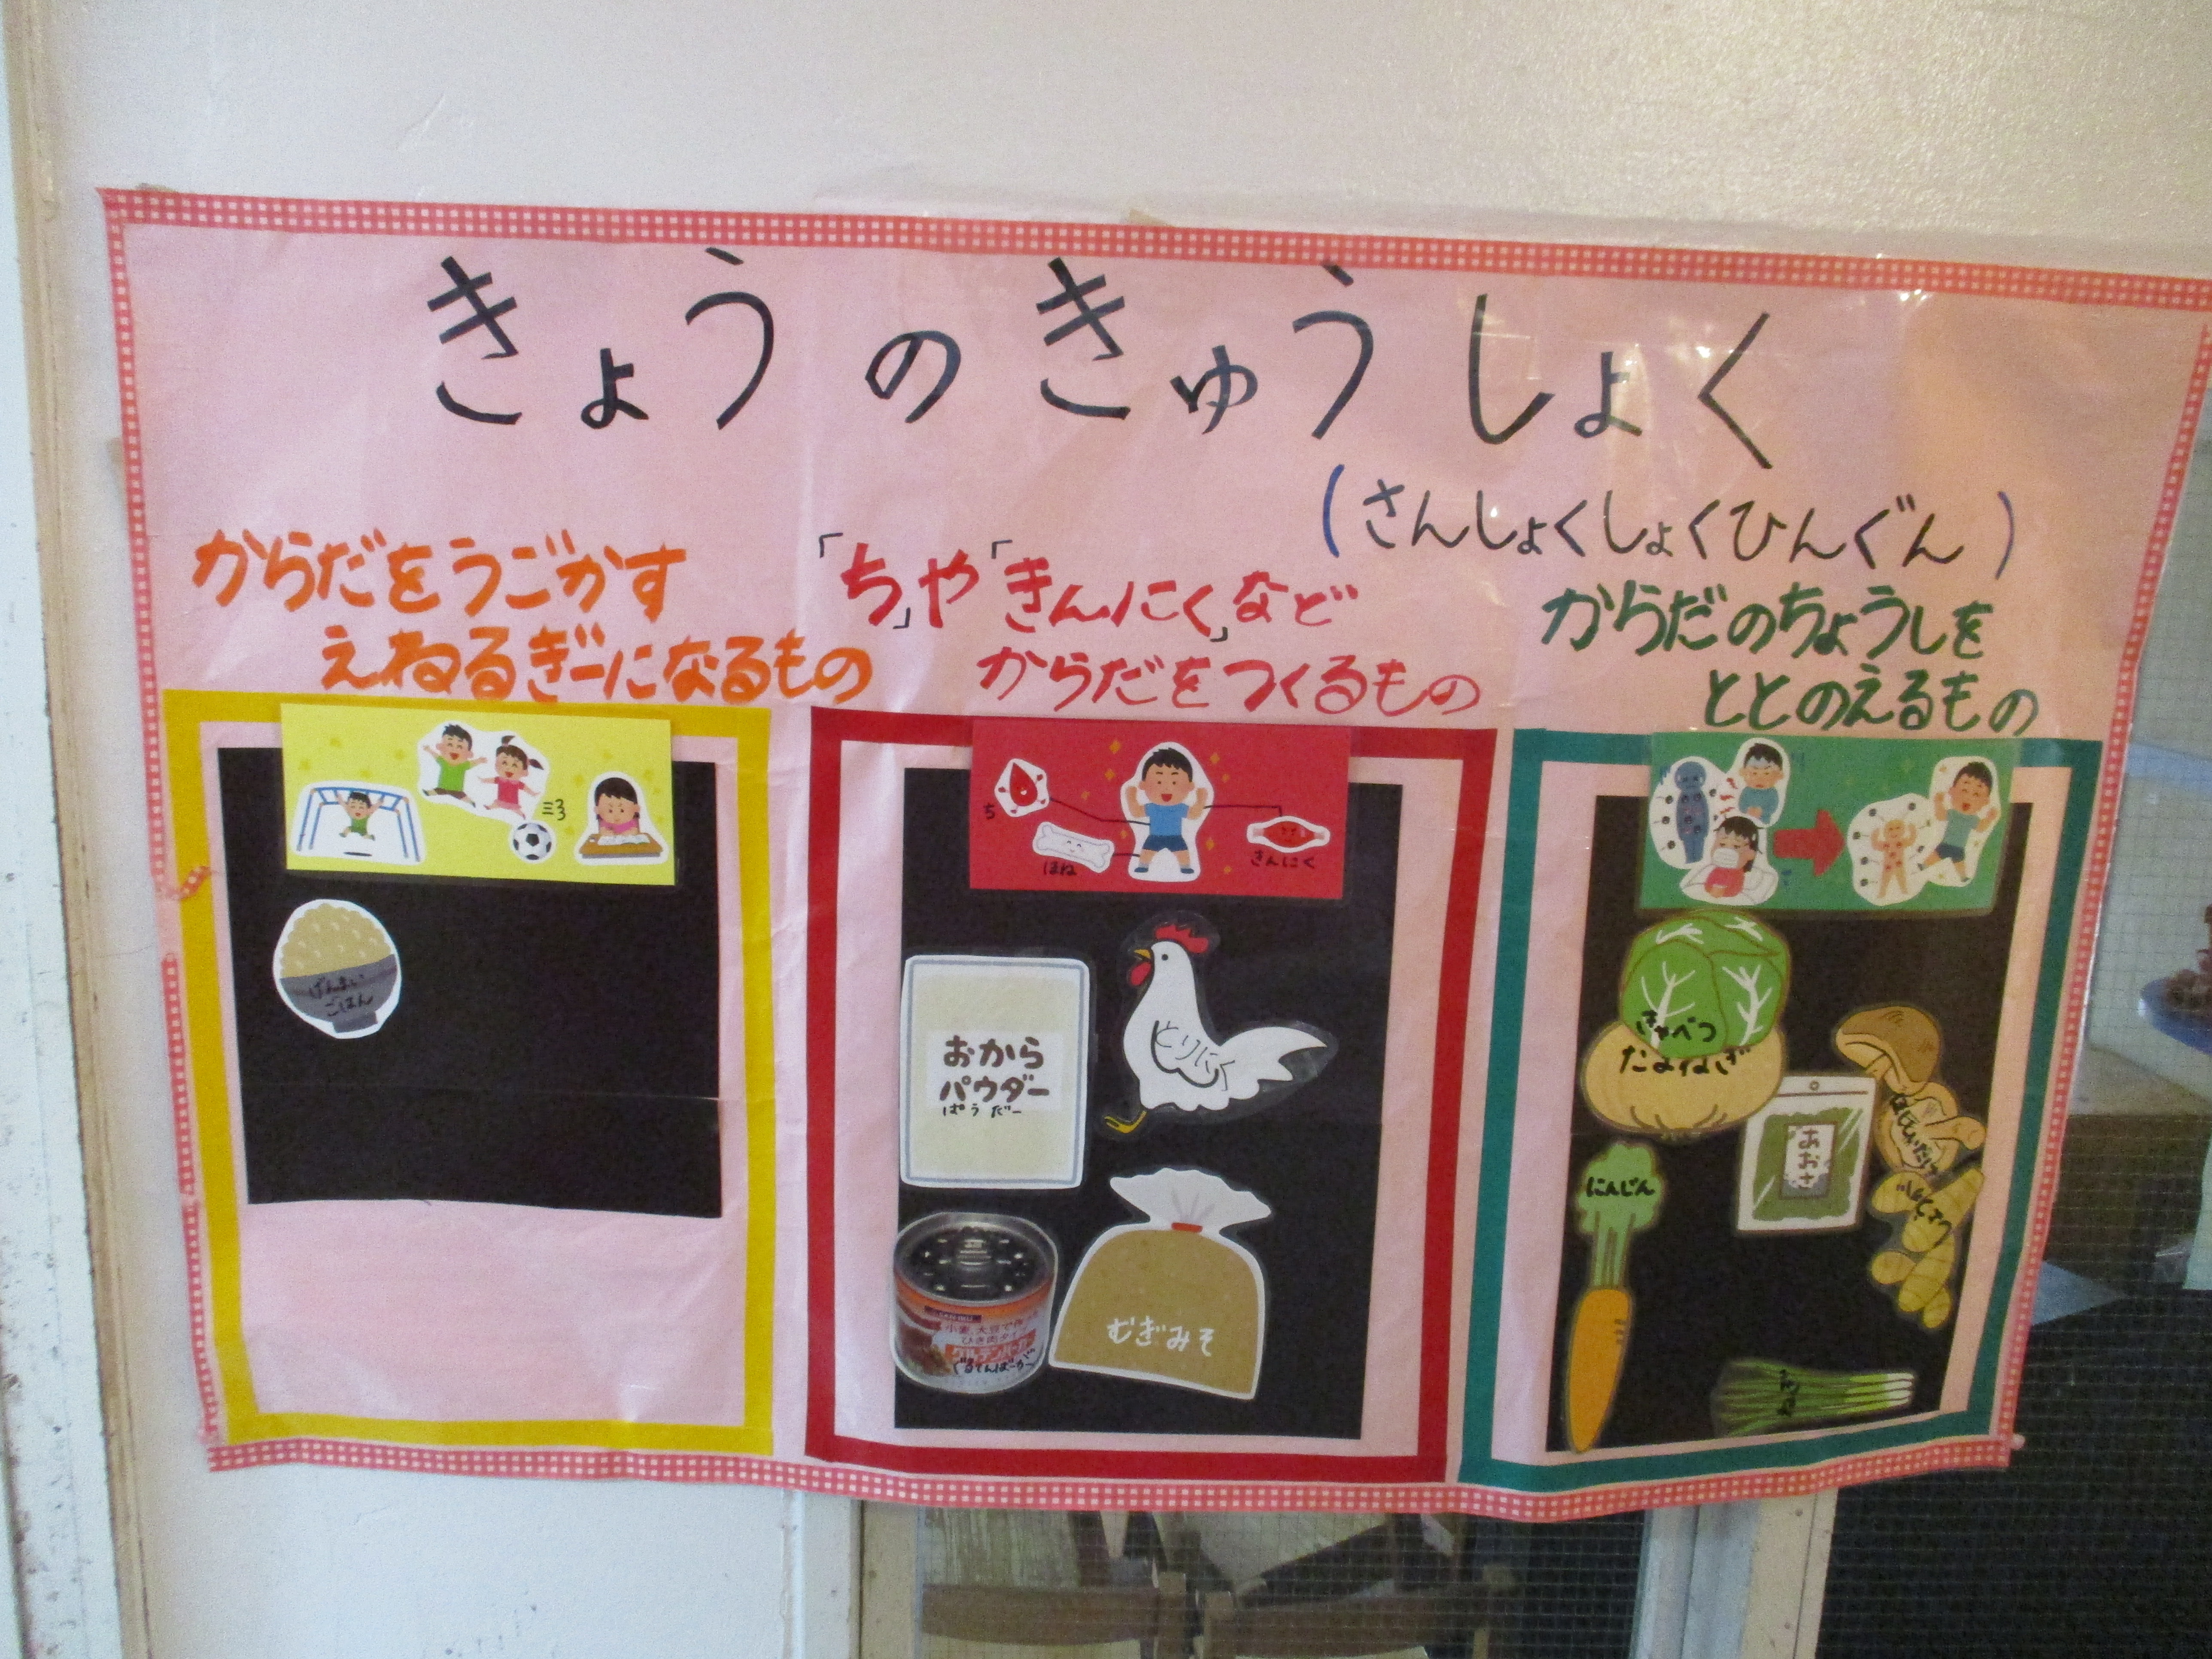 きょうのきゅうしょく
(さんしょくしょくひんぐん)
からだをうごかす
えねるぎーになるもの
「ち」や「きんにく」など
からだをつくるもの
からだのちょうしを
ととのえるもの
げんまい
ごはん
ち
ほね
きんにく
おから
パウダー
ぱうだー
とりにく
小麦、大豆で作
ひき肉タイプ
グルテンバーガー
ぐるてんばーがー
むぎみそ
きゃべつ
たまねぎ
にんじん
あおさ
ほししいたけ
しょうが
ねぎ